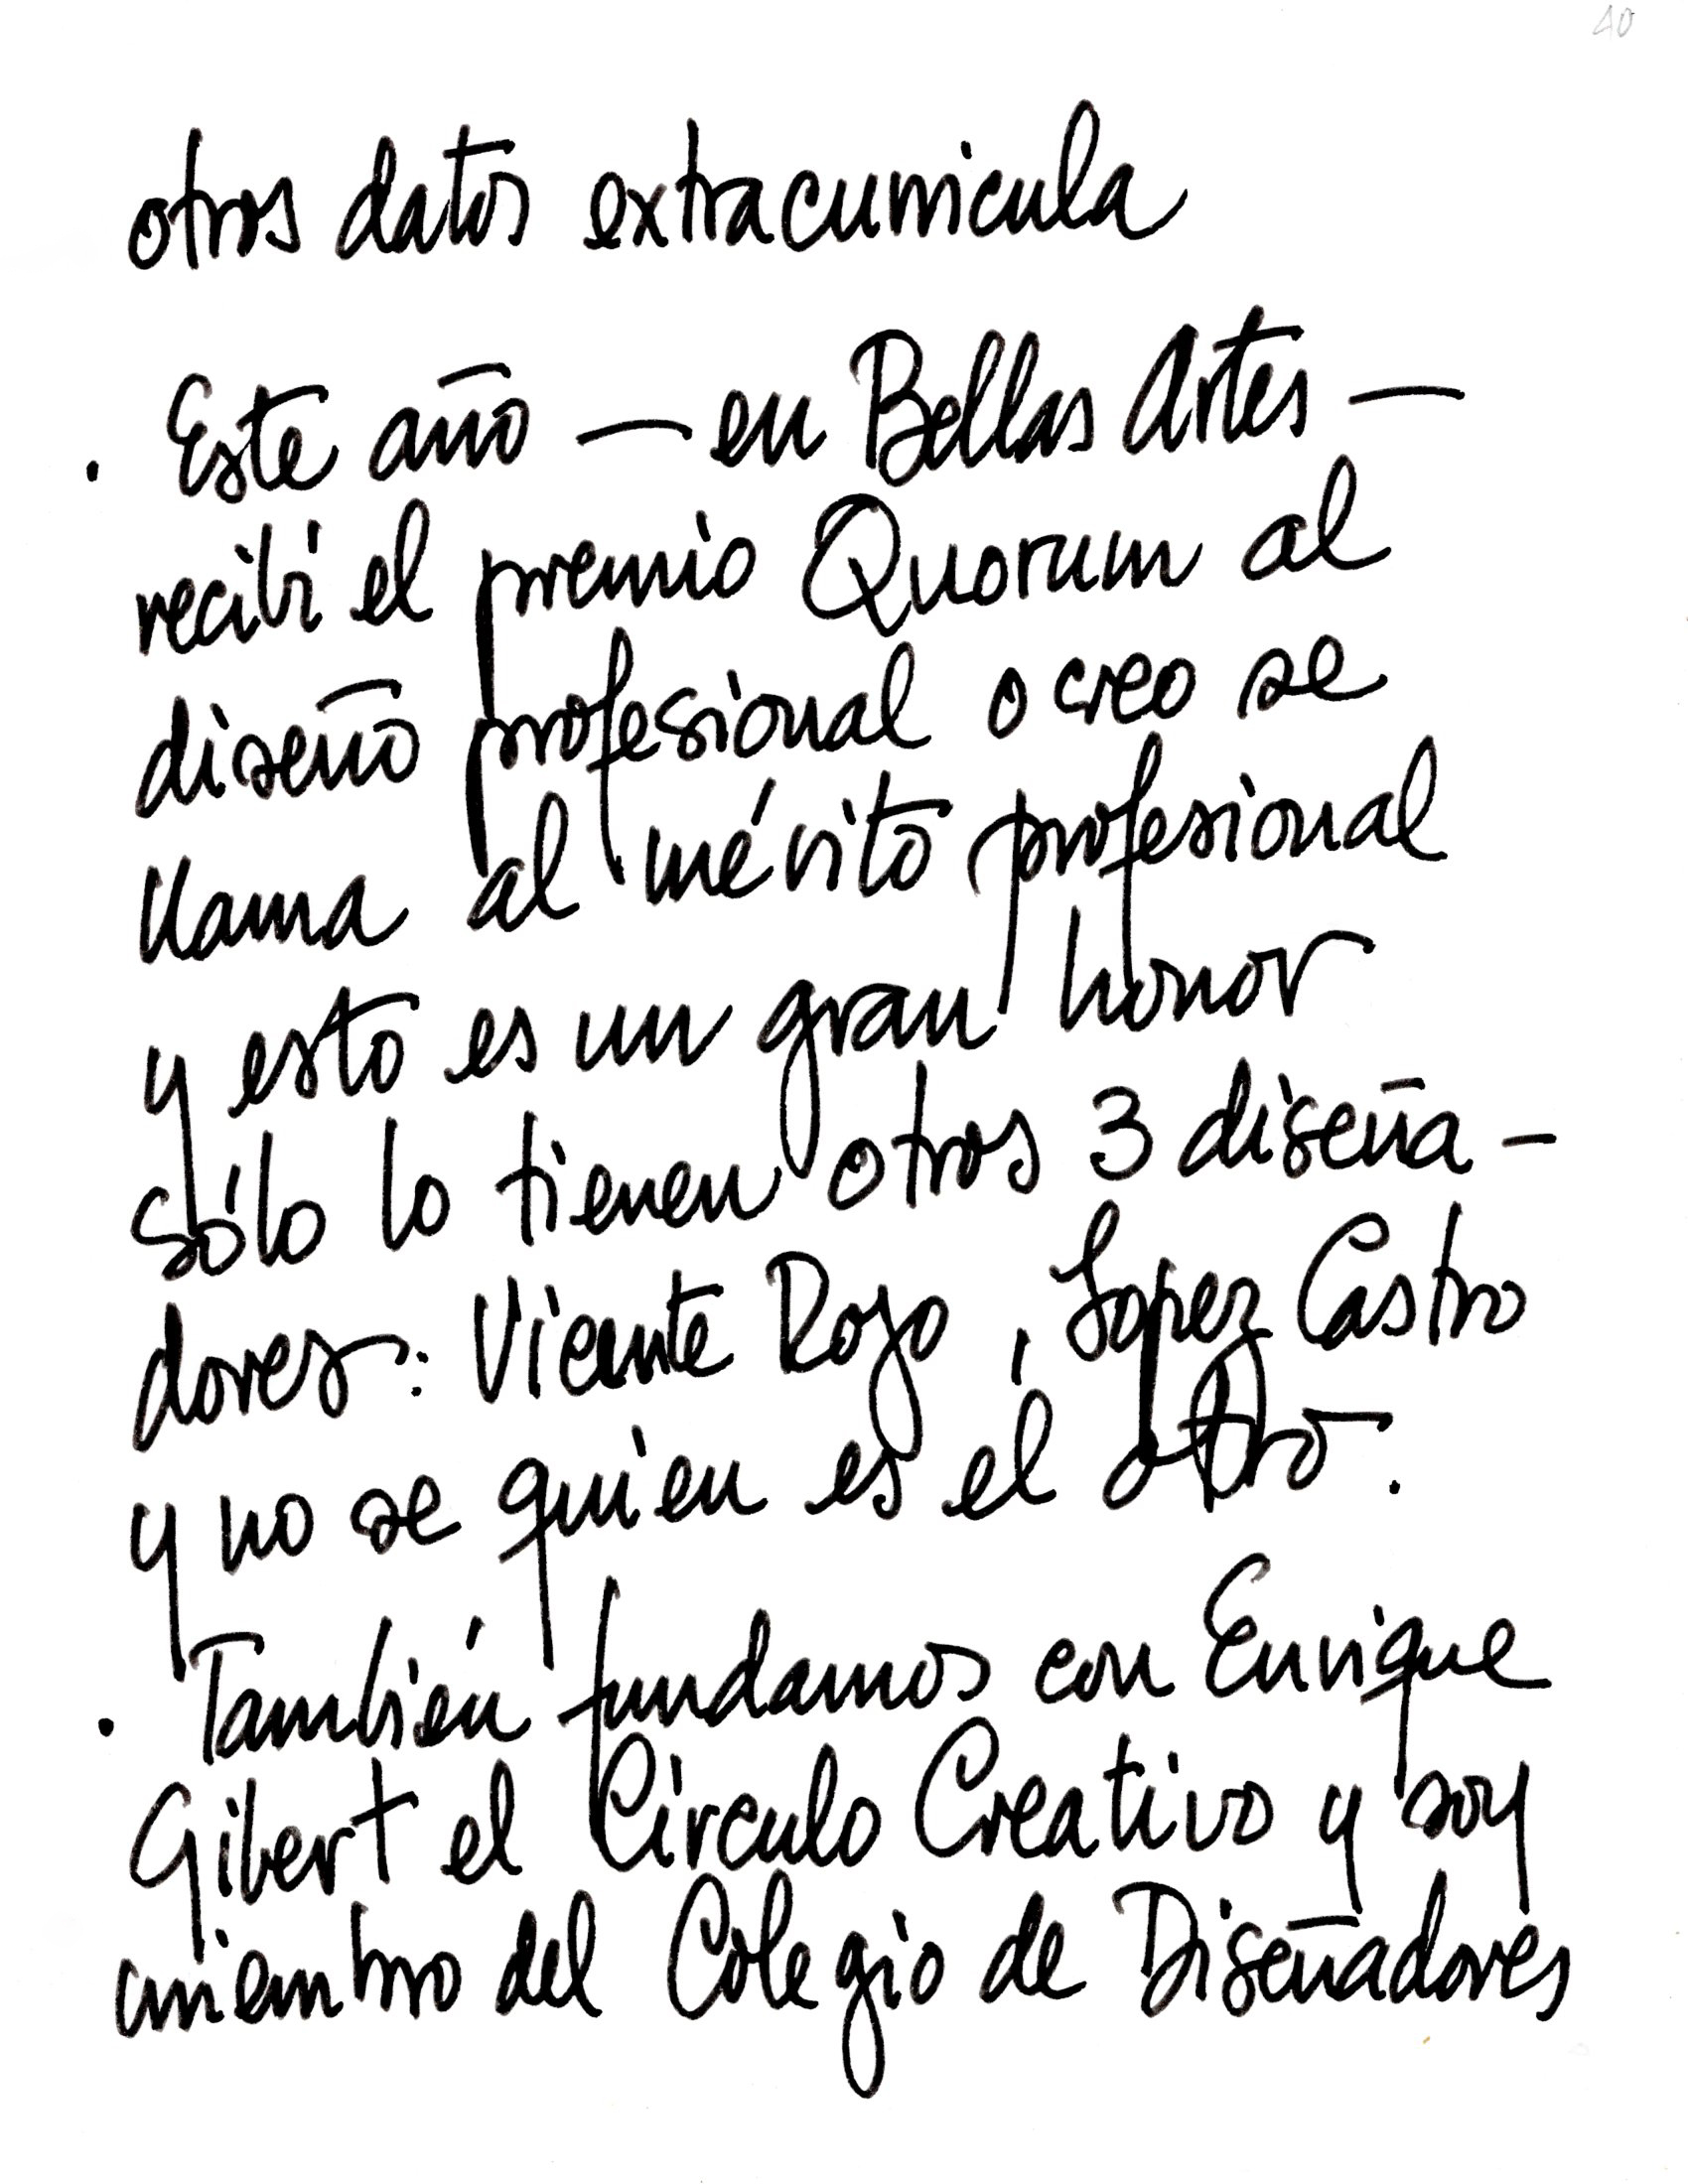 40
otros datos extracurricula
· Este año — en Bellas Artes —
recibí el premio Quorum al
diseño profesional o creo se
llama al mérito profesional
y esto es un gran honor
sólo lo tienen otros 3 diseña-
dores: Vicente Rojo, Lopez Castro
y no se quien es el otro.
· También fundamos con Enrique
Gibert el Círculo Creativo y soy
miembro del Colegio de Diseñadores